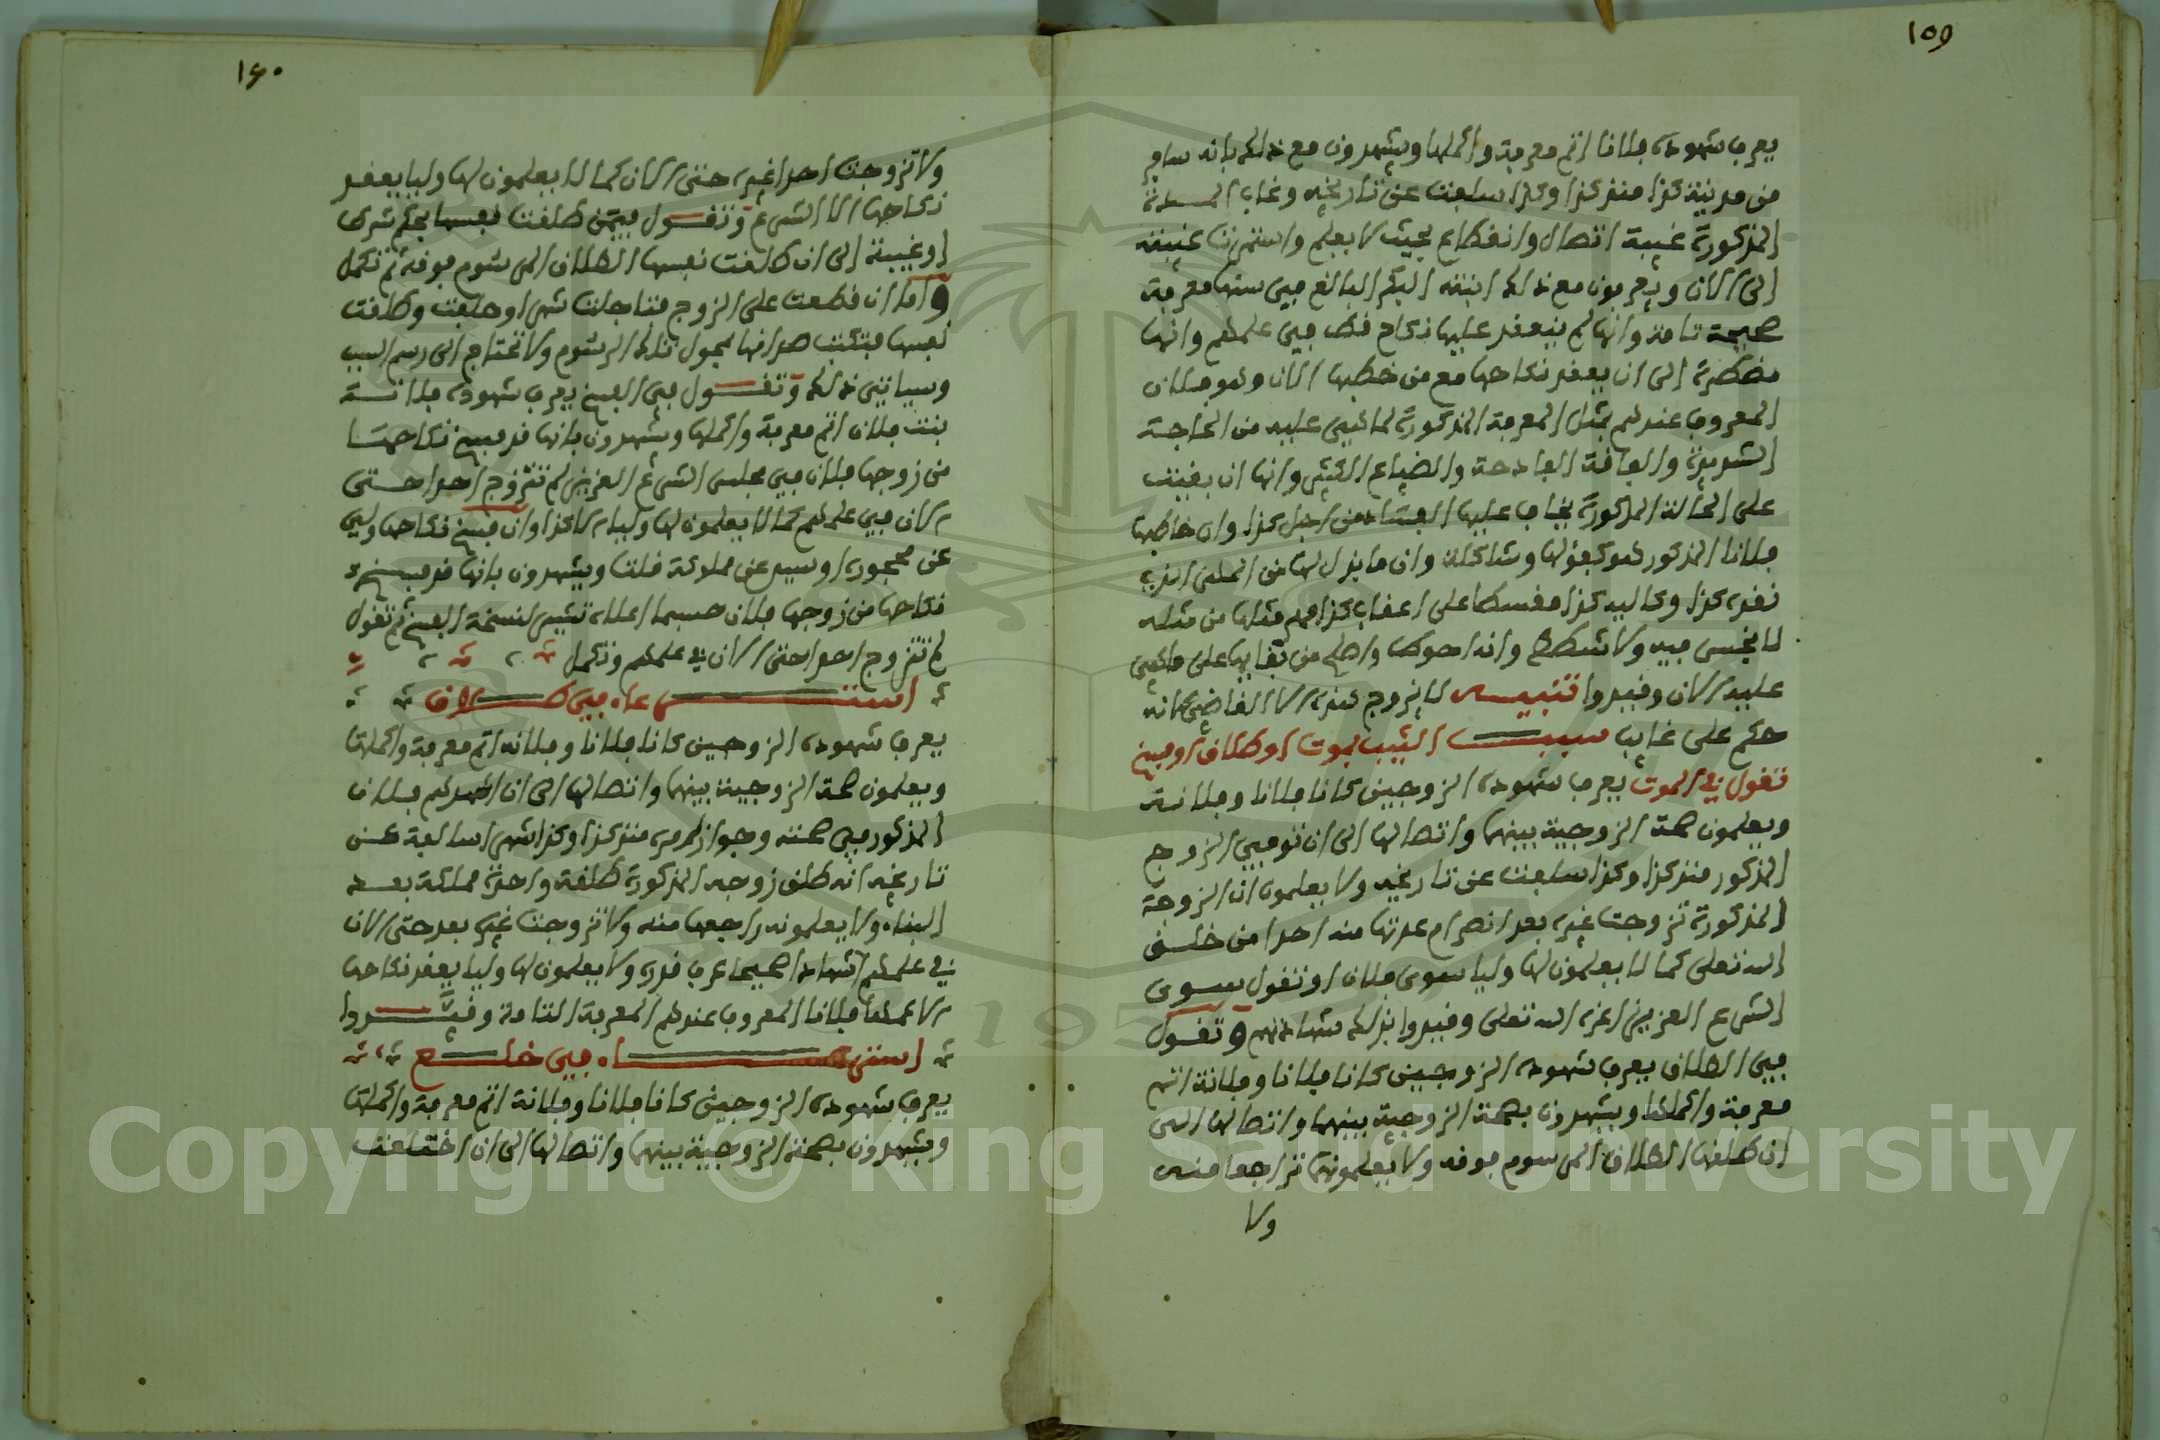 ١٥٩
يعرف شهوده فلانا اتم معرفة واكملها ويشهدون مع ذلك بانه سافر
من مدينة كذا منذ كذا وكذا سلفت عن تاريخه وغاب المدة
المذكورة غيبة اتصال وانقطاع بحيث لا يعلم واستمرت غيبته
الى الان ويعرفون مع ذلك ابنته البكر البالغ في سنها معرفة
صحيحة تامة وانها لم ينعقد عليها نكاح قط في علمهم وانها
مضطرة الى ان يعقد نكاحها مع من خطبها الان وهو فلان
المعروف عندهم بمثل المعرفة المذكورة لما هي عليه من الحاجة
الشديدة والفاقة الفادحة والضياع الكثير وانها ان بقيت
على الحالة المذكورة يخاف عليها الفساد من اجل كذا وان خاطبها
فلانا المذكور هو كفؤ لها وشاكلة وان ما بذل لها من المهر الذي
نقده كذا وكاليه كذا مقسطا على اعقاب كذا مهر مثلها من مثله
لا بخس فيه ولا شطط وانه احوط واصلح من بقائها على ما هي
عليه الان وقيدوا تنبيه لا يزوج هذه الا القاضي لانه
حكم على غايب سبب الثيب بموت او طلاق او فسخ
تقول في الموت يعرف شهوده الزوجين كانا فلانا وفلانة
ويعلمون صحة الزوجية بينهما واتصالها الى ان توفي الزوج
المذكور منذ كذا وكذا سلفت عن تاريخه ولا يعلمون ان الزوجة
المذكورة تزوجت غيره بعد انصرام عدتها منه احدا من خلق
الله تعلى كما لا يعلمون لها وليا سوى فلان او تقول سوى
الشرع العزيز اعزه الله تعلى وقيدوا بذلك شهادتهم وتقول
في الطلاق يعرف شهوده الزوجين كانا فلانا وفلانة اتم
معرفة واكملها ويشهدون بصحة الزوجية بينهما واتصالها الى
ان طلقها الطلاق المرسوم فوقه ولا يعلمونهما تراجعا منه
ولا
١٦٠
ولا تزوجت احدا غيره حتى الان كما لا يعلمون لها وليا يعقد
نكاحها الا الشرع وتقول فيمن طلقت نفسها بحكم شرط
او غيبة الى ان طلقت نفسها الطلاق المرسوم فوقه ثم تكمل
واما ان قطعت على الزوج فتاجلت شهرا وحلفت وطلقت
نفسها فتكتب صداقها بحول تلك الرسوم ولا تحتاج الى رسم السبب
وسياتي ذلك وتقول في الفسخ يعرف شهوده فلانة
بنت فلان اتم معرفة واكملها ويشهدون بانها قد فسخ نكاحها
من زوجها فلان في مجلس الشرع العزيز لم تتزوج احدا حتى
الان في علمهم كما لا يعلمون لها وليا الا كذا وان فسخ نكاحها ولي
عن محجوره او سيد عن مملوكة قلت ويشهدون بانها قد فسخ
نكاحها من زوجها فلان حسبما اعلاه تشير لنسخة الفسخ ثم تقول
لم تتزوج احدا حتى الان في علمهم وتكمل
استرعاء في طلاق
يعرف شهوده الزوجين كانا فلانا وفلانة اتم معرفة واكملها
ويعلمون صحة الزوجية بينهما واتصالها الى ان اشهدهم فلان
المذكور في صحته وجواز امره منذ كذا وكذا شهرا سالفة عن
تاريخه انه طلق زوجه المذكورة طلقة واحدة مملكة بعد
البناء ولا يعلمونه راجعها منه ولا تزوجت غيره بعد حتى الان
في علمهم اشهادا صحيحا عرف قدره ولا يعلمون لها وليا يعقد نكاحها
الا عمها فلانا المعروف عندهم المعرفة التامة وقيدوا
استرعاء في خلع
يعرف شهوده الزوجين كانا فلانا وفلانة اتم معرفة واكملها
ويشهدون بصحة الزوجية بينهما واتصالها الى ان اختلعت
Copyright © King Saud University
1957